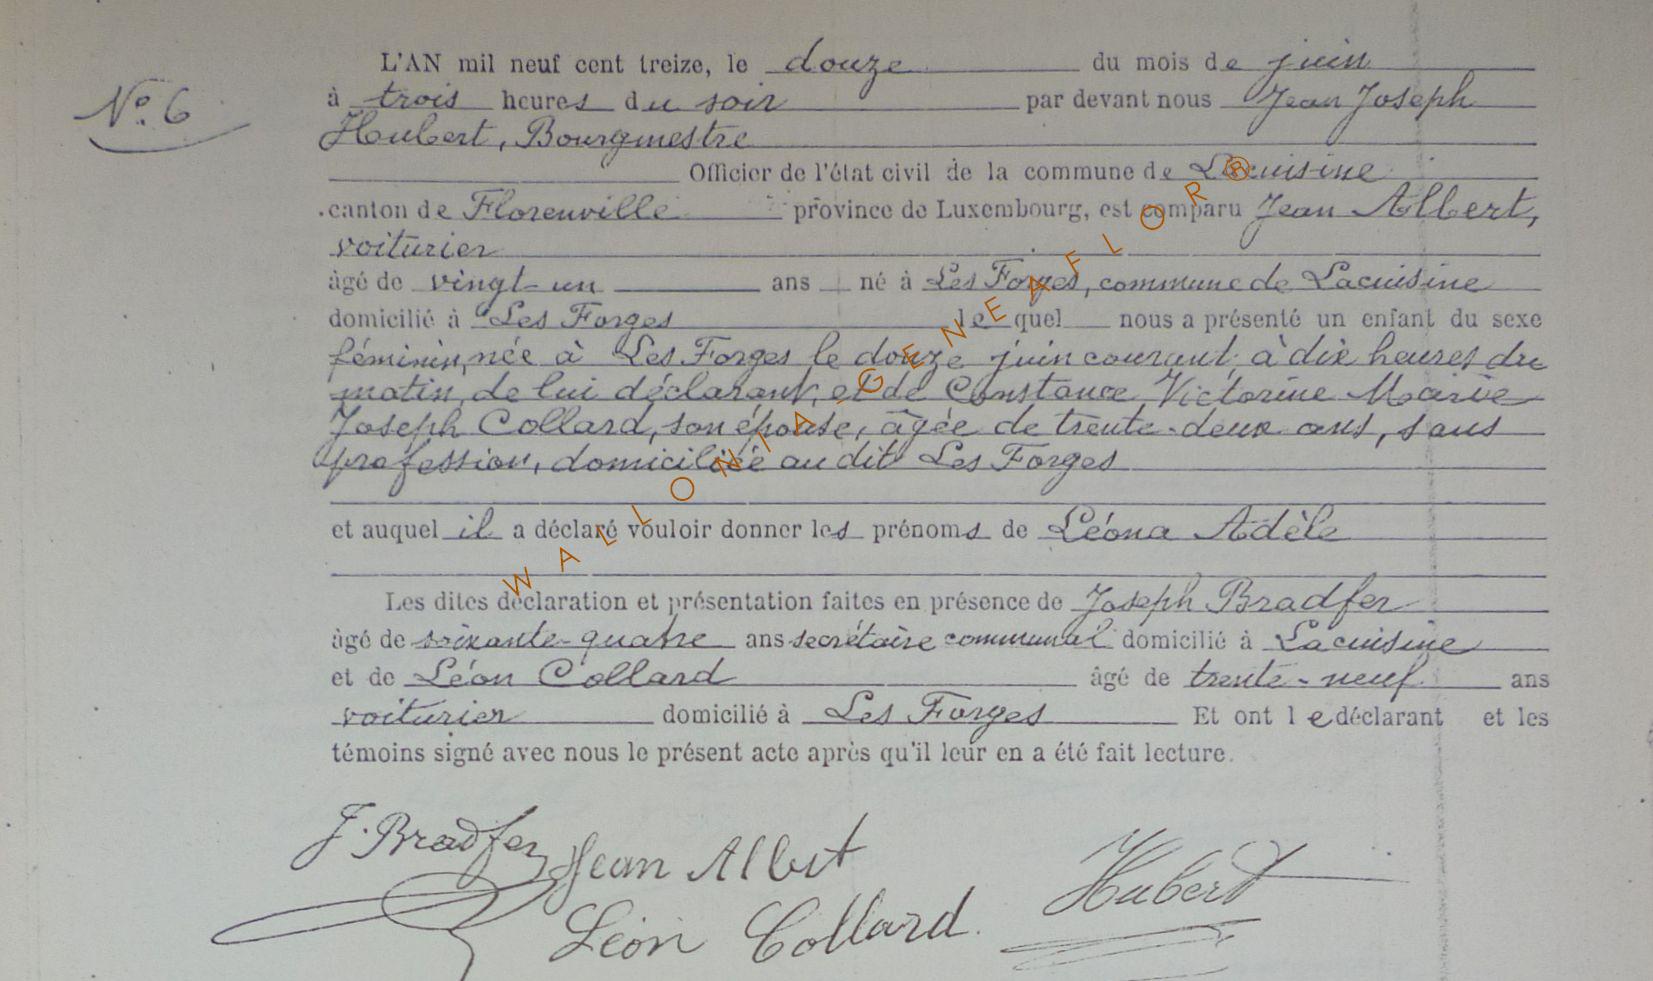 N° 6
L'AN mil neuf cent treize, le douze du mois de juin
à trois heures du soir par devant nous Jean Joseph
Hubert, Bourgmestre
Officier de l'état civil de la commune de Lacuisine
canton de Florenville province de Luxembourg, est comparu Jean Albert,
voiturier
âgé de vingt-un ans né à Les Forges, commune de Lacuisine
domicilié à Les Forges lequel nous a présenté un enfant du sexe
féminin, née à Les Forges le douze juin courant, à dix heures du
matin, de lui déclarant, et de Constance Victorine Marie
Joseph Collard, son épouse, âgée de trente-deux ans, sans
profession, domiciliée audit Les Forges
et auquel il a déclaré vouloir donner les prénoms de Léona Adèle
Les dites déclaration et présentation faites en présence de Joseph Bradfer
âgé de soixante-quatre ans secrétaire communal domicilié à Lacuisine
et de Léon Collard âgé de trente-neuf ans
voiturier domicilié à Les Forges Et ont le déclarant et les
témoins signé avec nous le présent acte après qu'il leur en a été fait lecture.
J. Bradfer Jean Albert Hubert
Léon Collard
WALLONIA-GENEAFLOR®